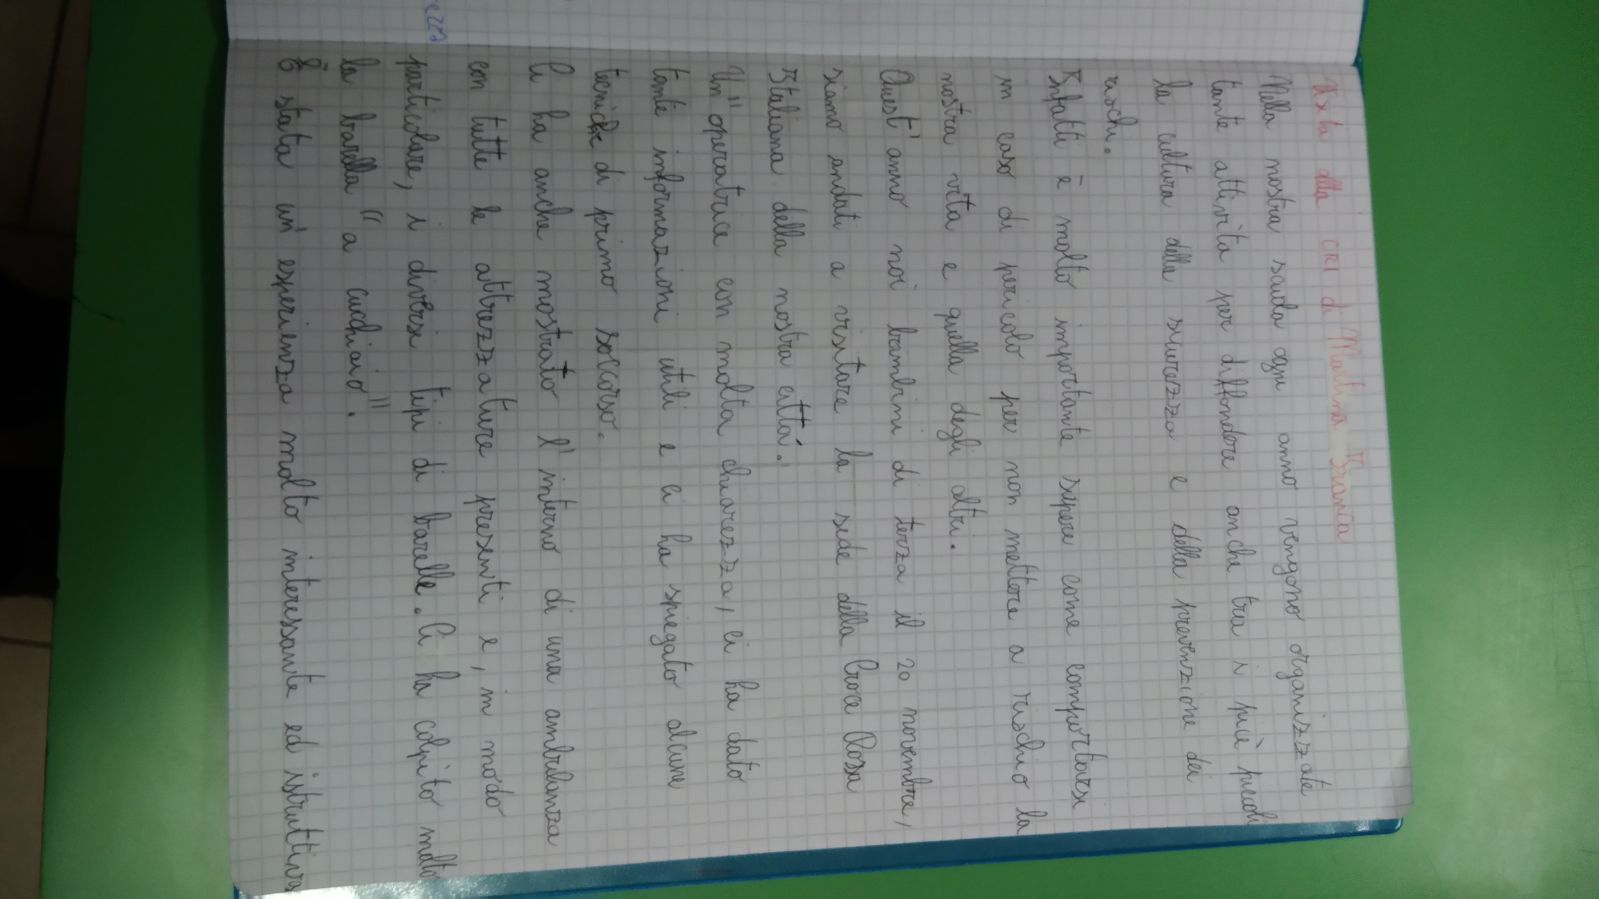 Visita alla CRI di Martina Franca
Nella nostra scuola ogni anno vengono organizzate
tante attività per diffondere anche tra i più piccoli
la cultura della sicurezza e della prevenzione dei
rischi.
Infatti è molto importante sapere come comportarsi
in caso di pericolo per non mettere a rischio la
nostra vita e quella degli altri.
Quest'anno noi bambini di terza il 20 novembre,
siamo andati a visitare la sede della Croce Rossa
Italiana della nostra città.
Un'operatrice con molta chiarezza, ci ha dato
tante informazioni utili e ci ha spiegato alcune
tecniche di primo soccorso.
Ci ha anche mostrato l'interno di una ambulanza
con tutte le attrezzature presenti e, in modo
particolare, i diversi tipi di barelle. Ci ha colpito molto
la barella "a cucchiaio".
È stata un'esperienza molto interessante ed istruttiva
ezza